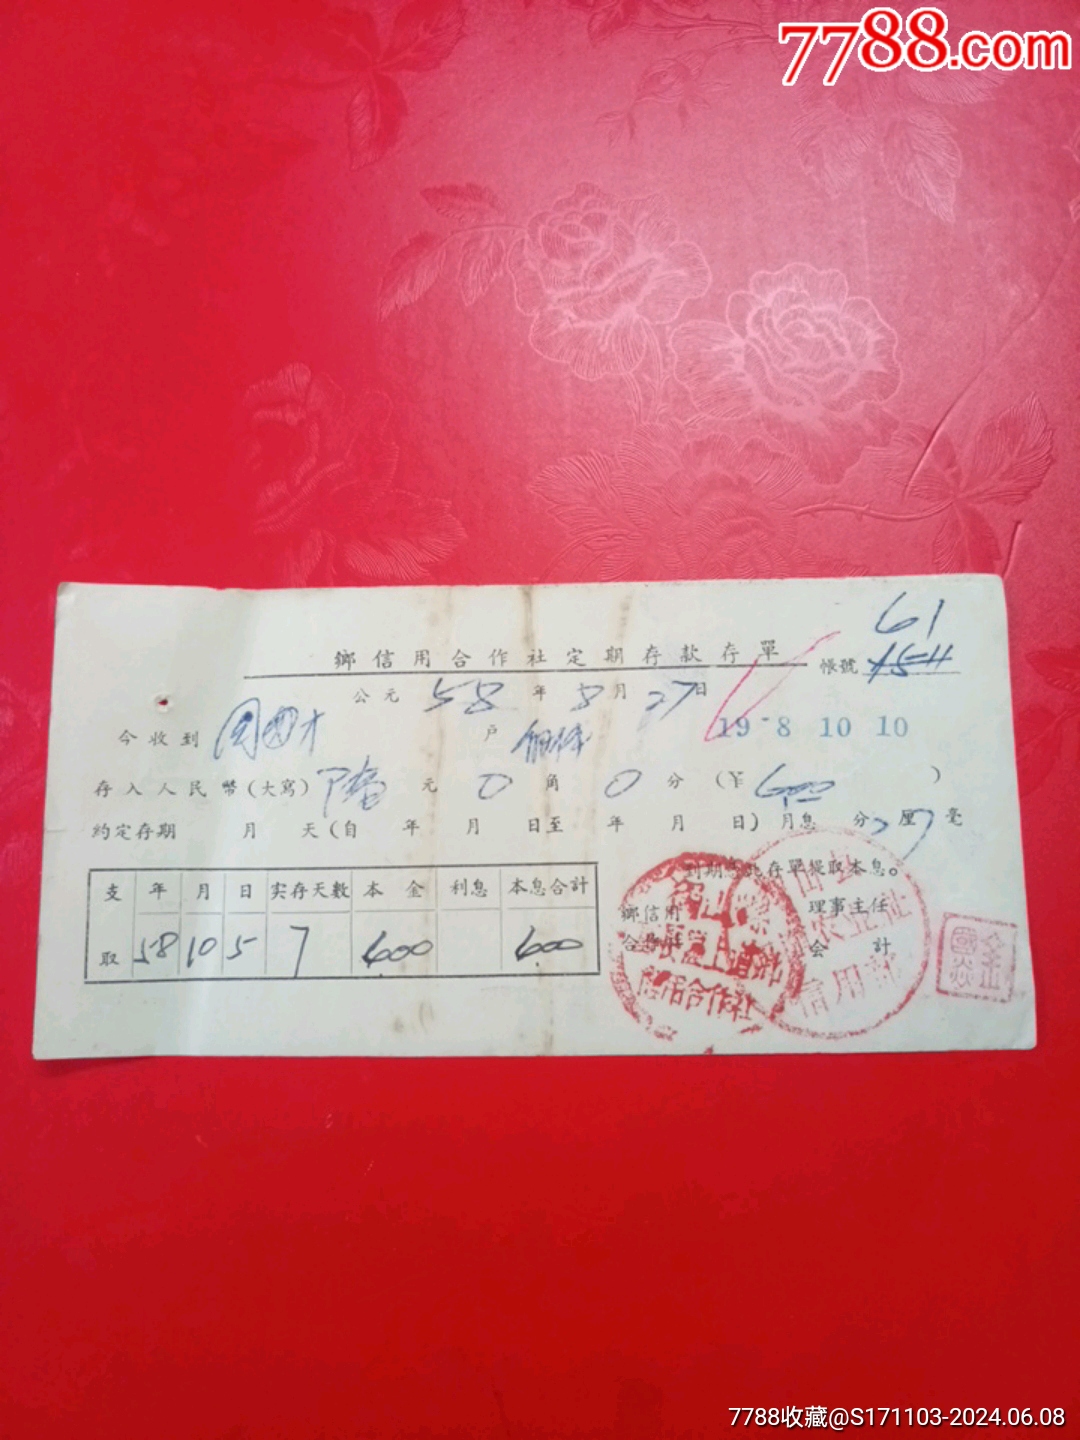 7788.com
61
鄉信用合作社定期存款存單 帳號
公元 58 年 8 月 27 日
19 8 10 10
今收到 周 戶
存入人民幣(大寫) 陸 元 0 角 0 分 (¥ 6.00 )
約定存期 月 天(自 年 月 日至 年 月 日) 月息 分 7 厘 毫
到期憑此存單提取本息。
支 年 月 日 实存天數 本金 利息 本息合計
取 58 10 5 7 6.00 6.00
鄉信用 理事主任
合作社 會計
信用合作社
信用部
7788收藏@S171103-2024.06.08